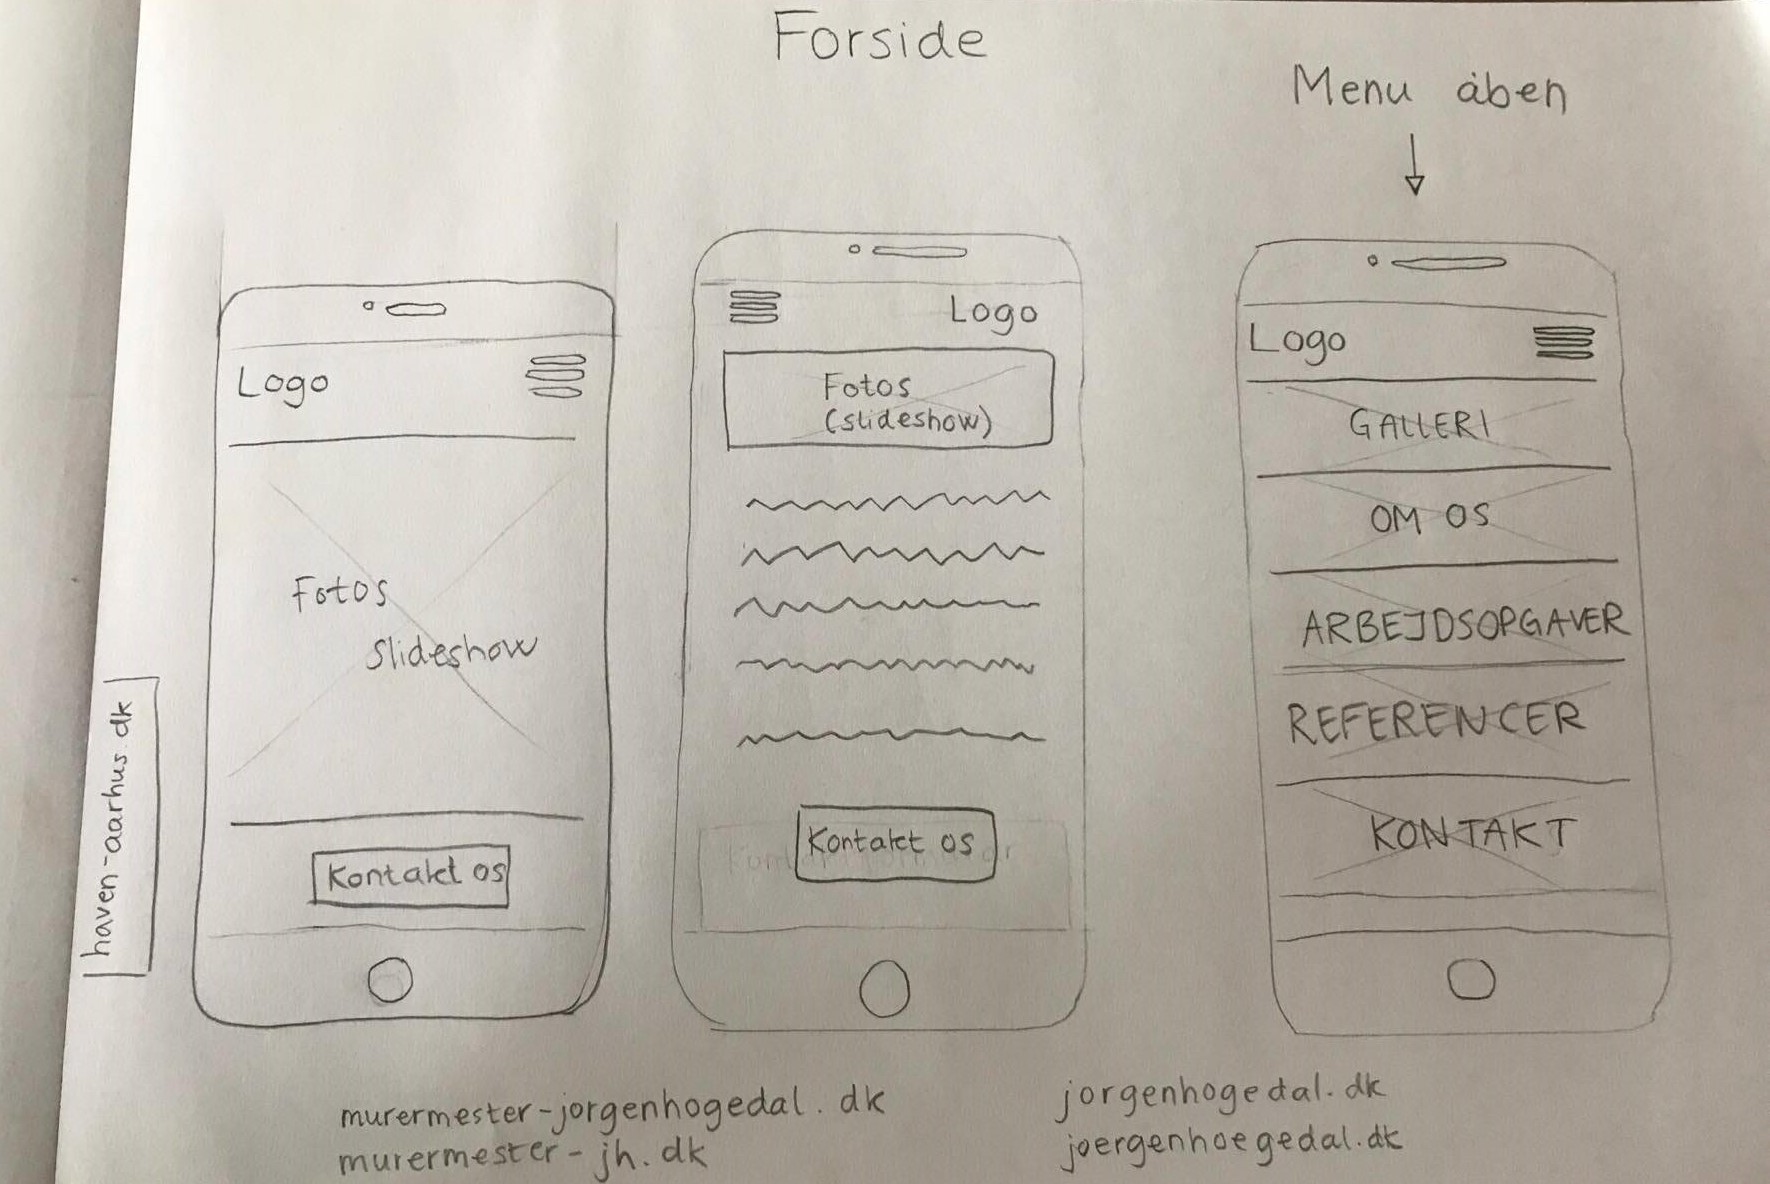 Forside
Menu åben
Logo
Fotos
slideshow
Kontakt os
Logo
Fotos
(slideshow)
Kontakt os
Logo
GALLERI
OM OS
ARBEJDSOPGAVER
REFERENCER
KONTAKT
haven-aarhus.dk
murermester-jorgenhogedal.dk
murermester-jh.dk
jorgenhogedal.dk
joergenhoegedal.dk